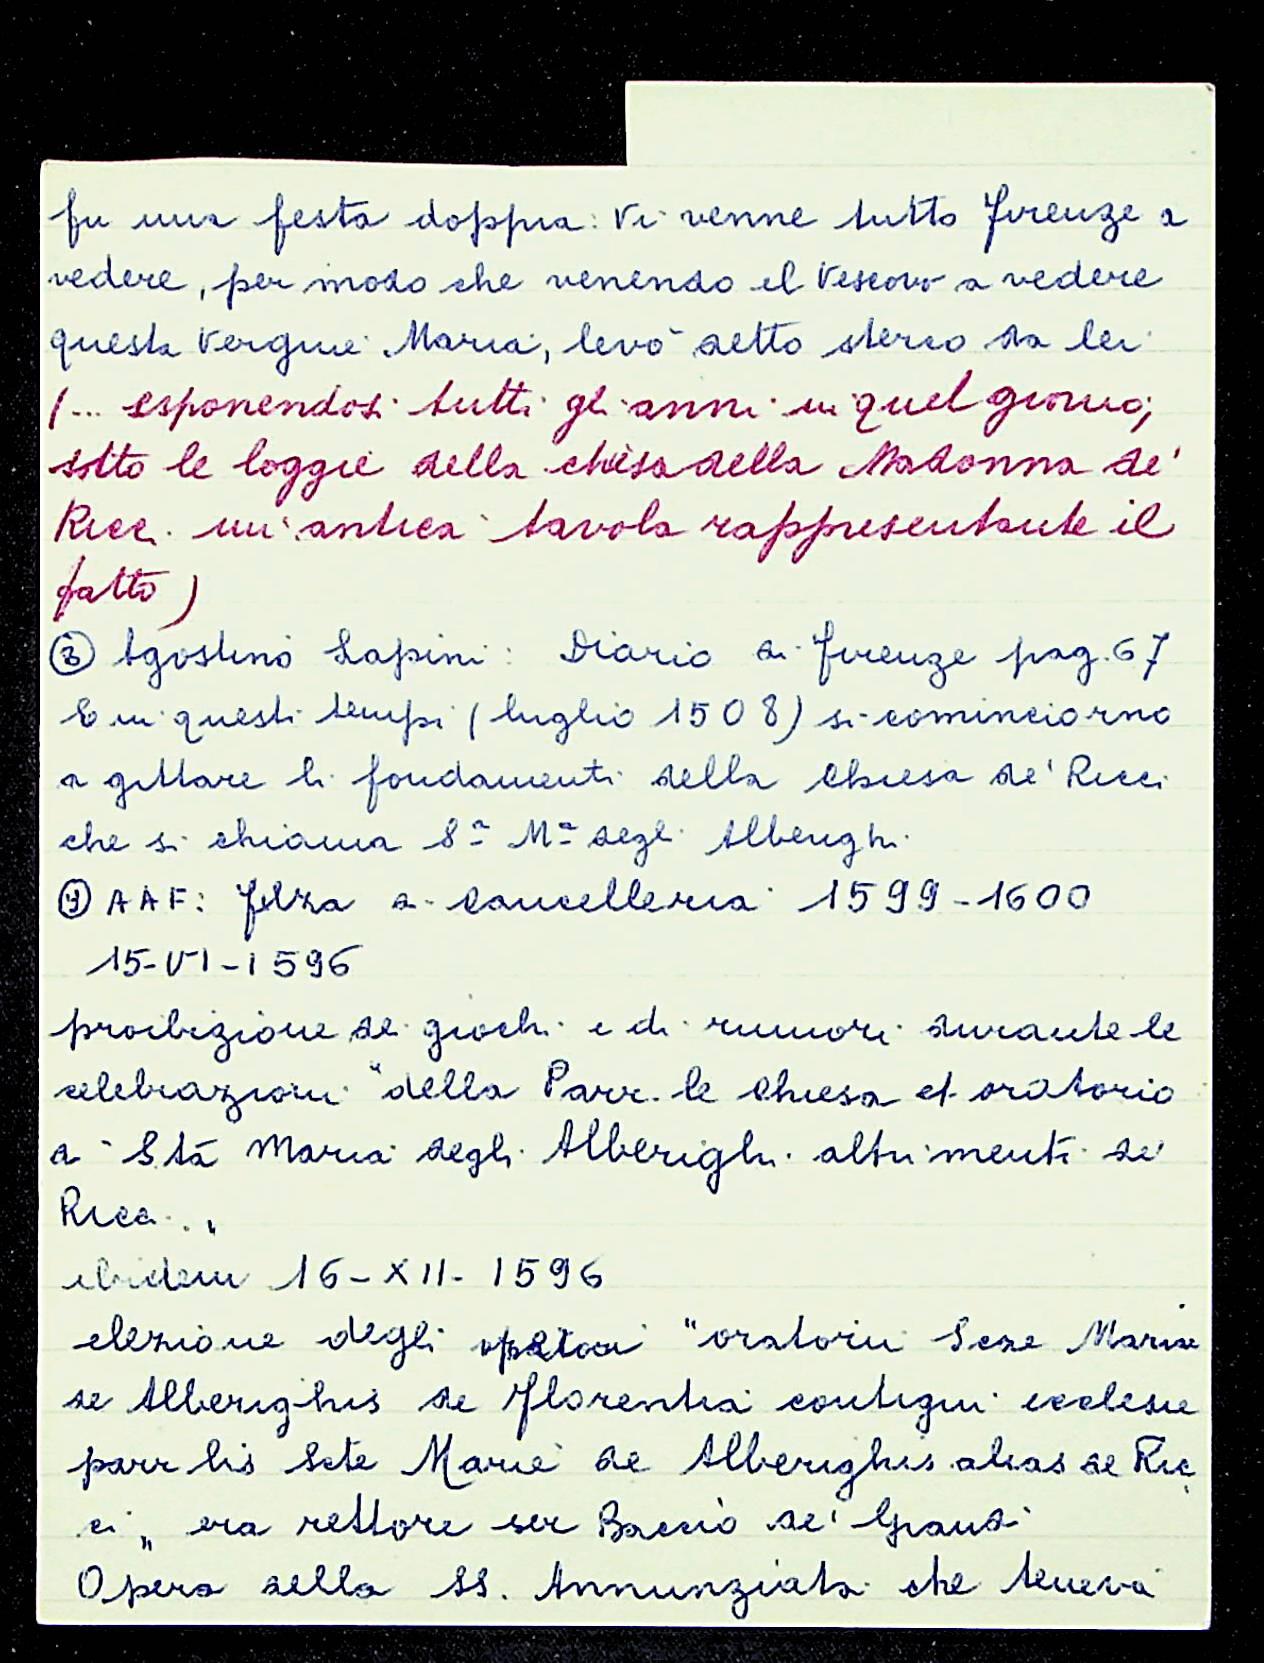 fu una festa doppia: Vi venne tutto Firenze a
vedere, per modo che venendo el Vescovo a vedere
questa Vergine Maria, levò detto sterco da lei
(... esponendosi tutti gli anni in quel giorno,
sotto le loggie della chiesa della Madonna de'
Ricci un'antica tavola rappresentante il
fatto)
③ Agostino Lapini: Diario di Firenze pag. 67
E in questi tempi (luglio 1508) si cominciorno
a gittare li fondamenti della Chiesa de' Ricci
che si chiama Sª Mª degli Alberighi.
④ AAF: filza di Cancelleria 1599-1600
15-VI-1596
proibizione dei giochi e di rumori durante le
celebrazioni "della Parr.le Chiesa et oratorio
di Sta Maria degli Alberighi altrimenti de'
Ricci..."
ibidem 16-XII-1596
elezione degli operai "oratorii Scae Mariae
de Alberighis de Florentia contigui ecclesie
parrlis Scte Marie de Alberighis alias de Ric
ci" era rettore ser Baccio de' Grandi
Opera della SS. Annunziata che teneva